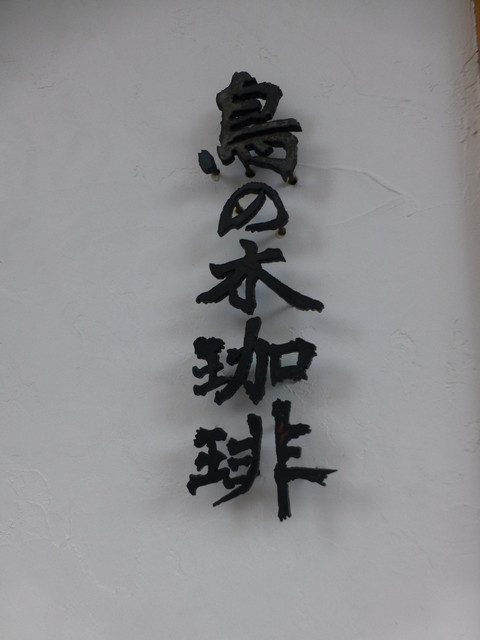 鳥の木珈琲